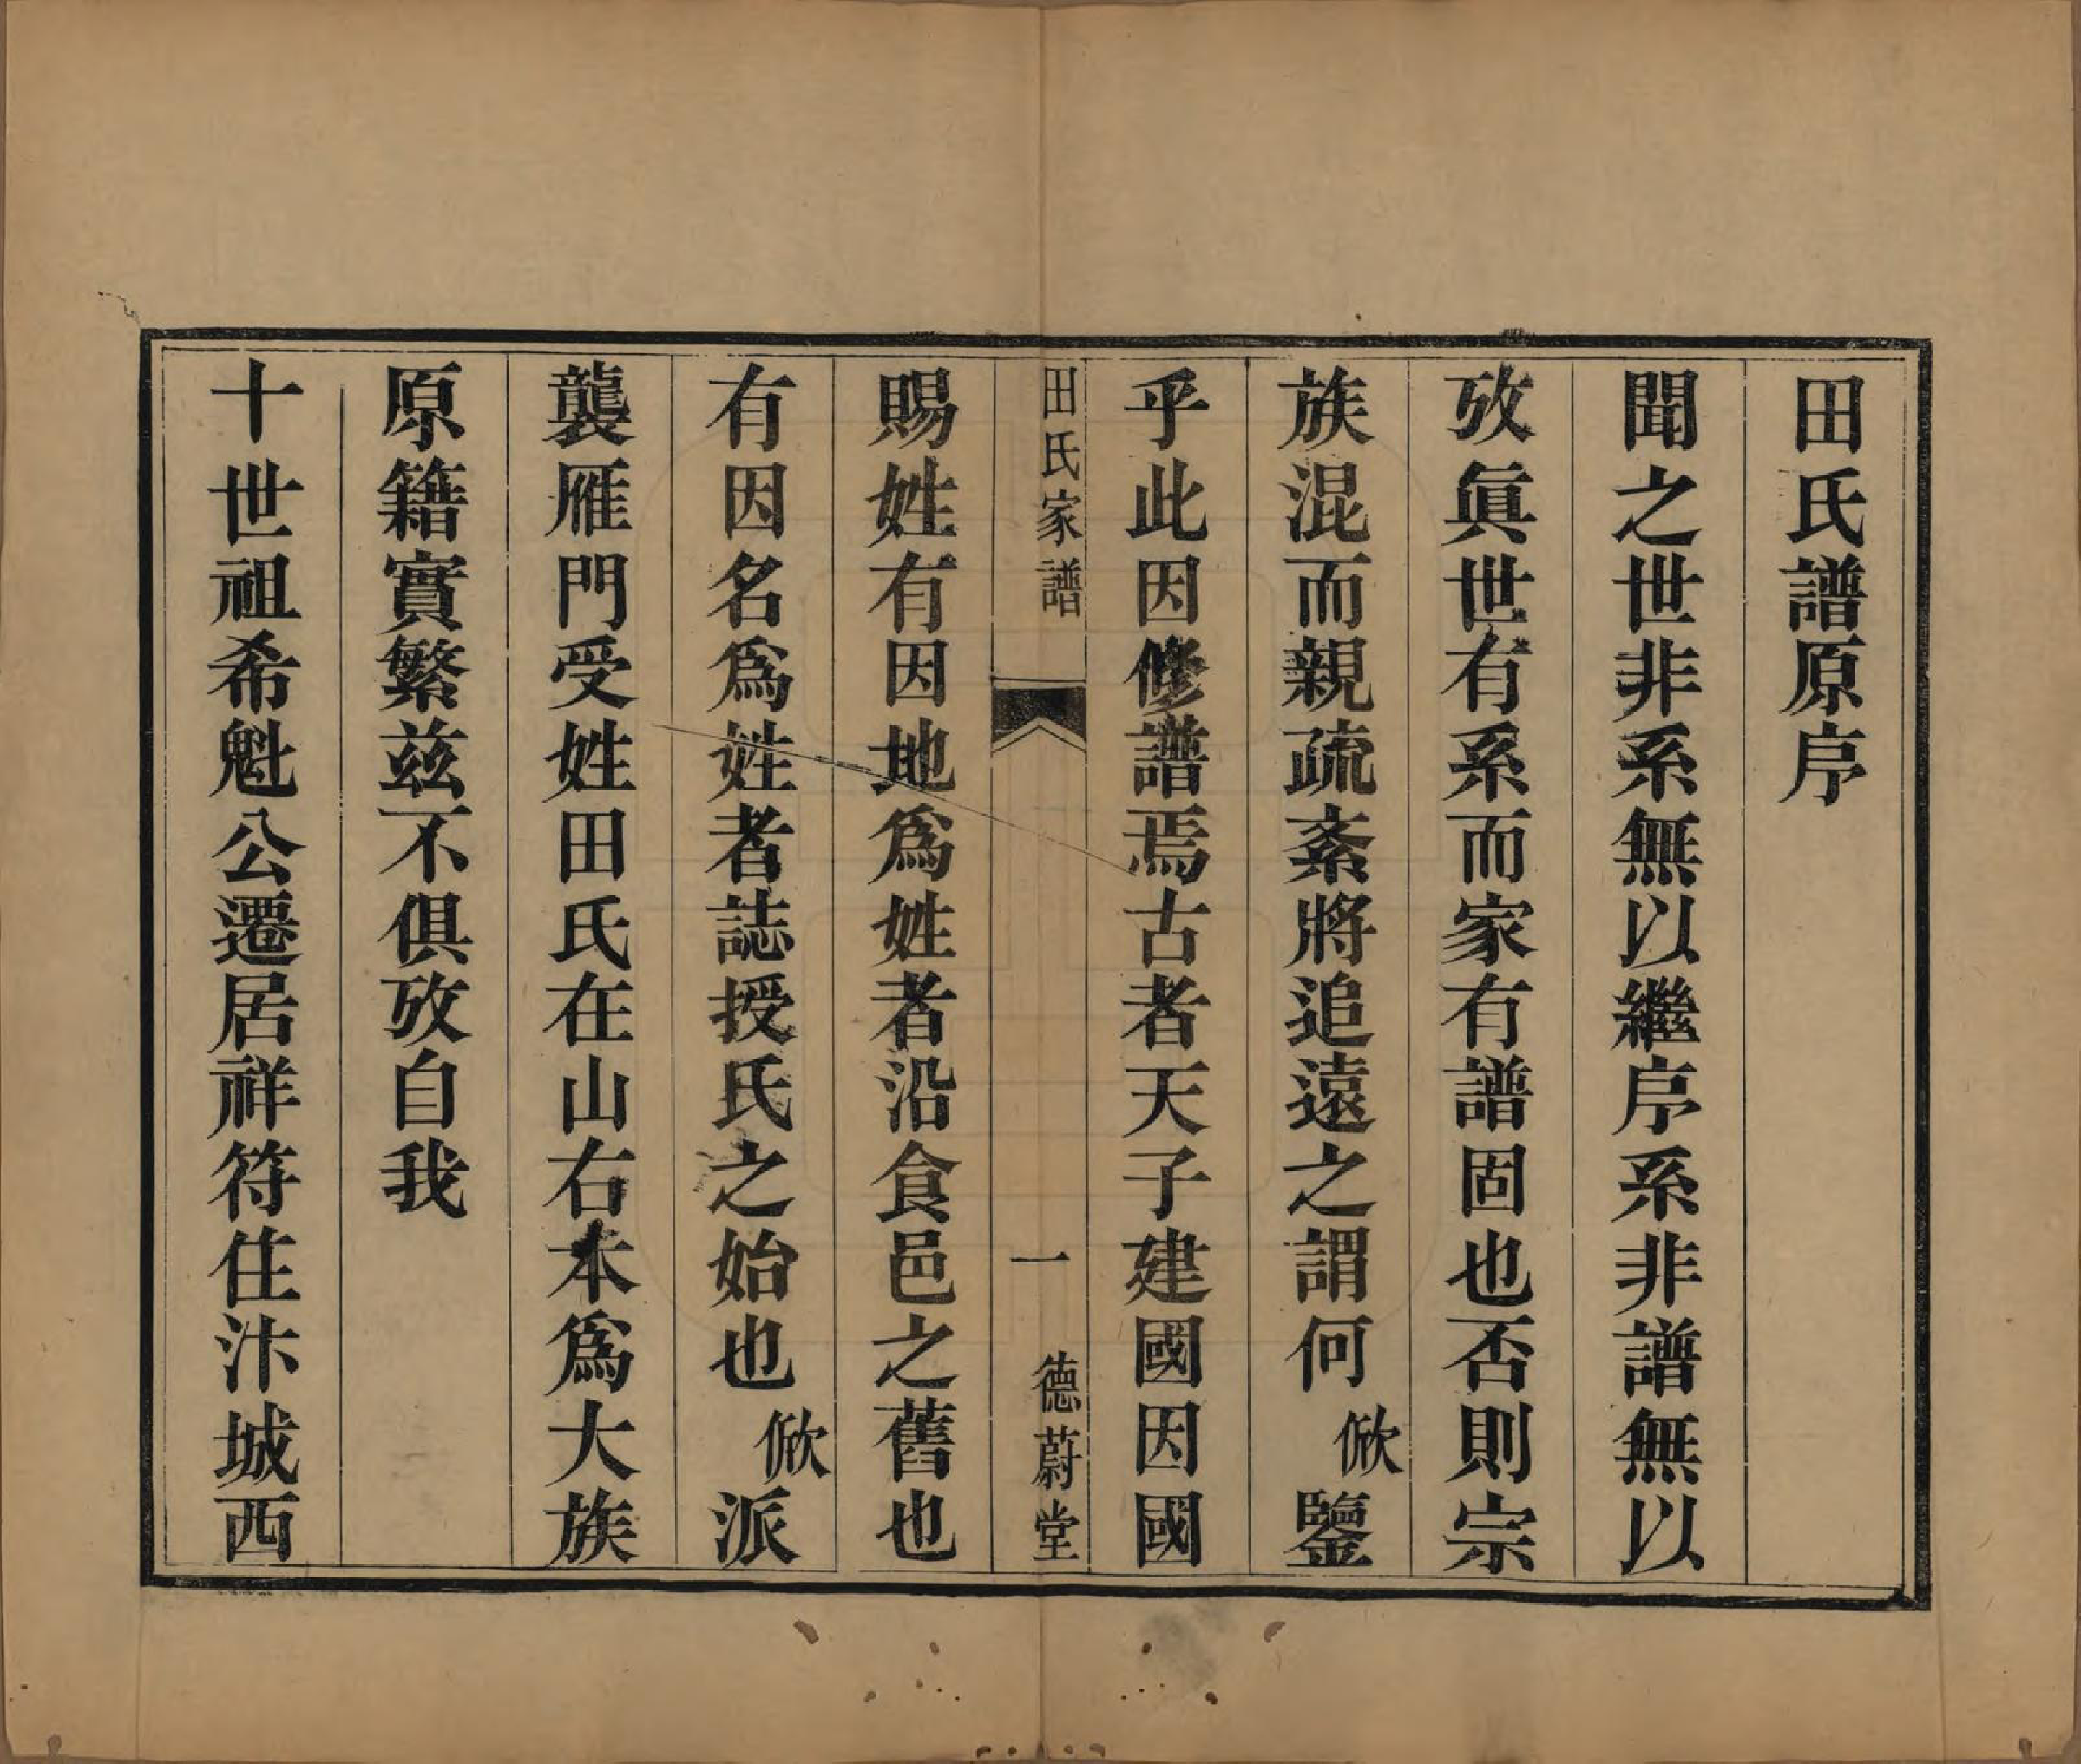 田氏譜原序
聞之世非系無以繼序系非譜無以
攷眞世有系而家有譜固也否則宗
族混而親疏紊將追遠之謂何俽鑒
乎此因修譜焉古者天子建國因國
田氏家譜 一 德蔚堂
賜姓有因地爲姓者沿食邑之舊也
有因名爲姓者誌授氏之始也俽派
襲雁門受姓田氏在山右本爲大族
原籍實繁茲不俱攷自我
十世祖希魁公遷居祥符住汴城西